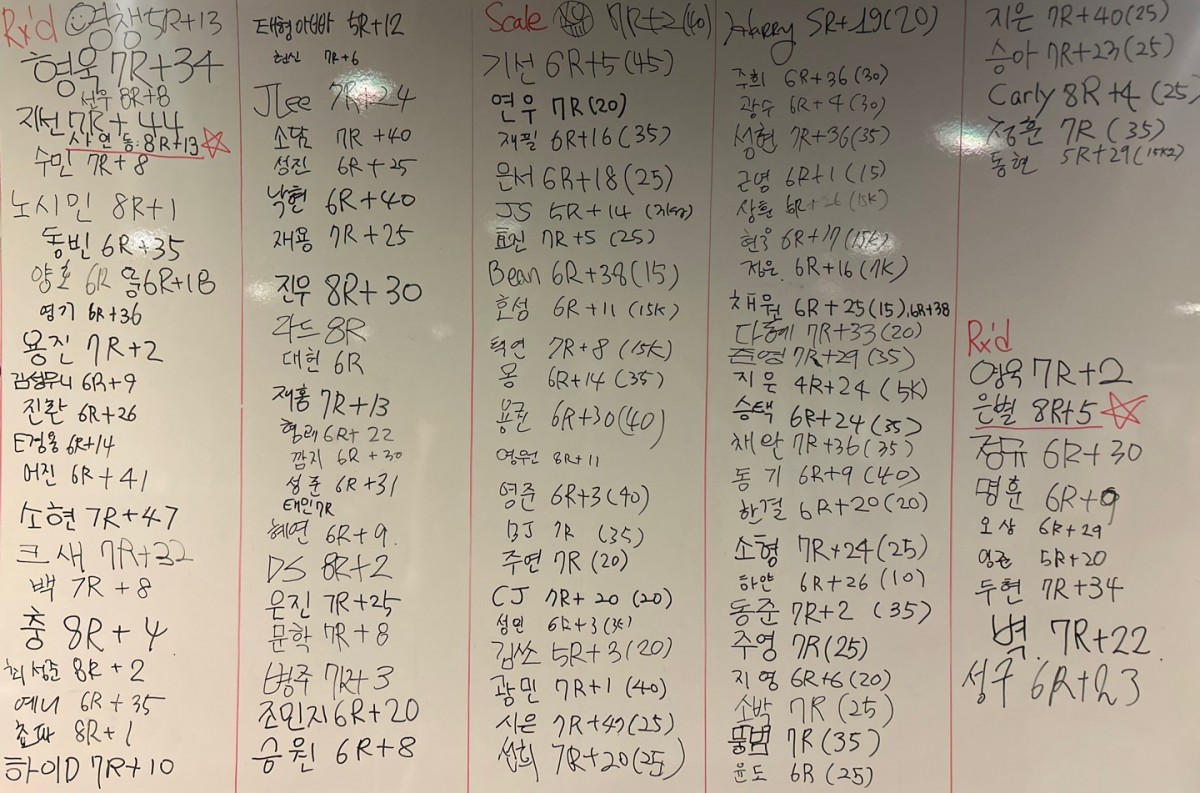 Rx'd 영창 5R+13
형욱 7R+34
선우 8R+8
지선 7R+44
사연동: 8R+13
수민 7R+8
노시민 8R+1
동빈 6R+35
양호 6R 몽 6R+18
영기 6R+36
용진 7R+2
김성무니 6R+9
진환 6R+26
E검용 6R+14
어진 6R+41
소현 7R+47
크새 7R+32
백 7R+8
충 8R+4
최성준 8R+2
예니 6R+35
쵸파 8R+1
하이D 7R+10
태형아빠 5R+12
현신 7R+6
JLee 7R+24
소담 7R+40
성진 6R+25
낙현 6R+40
재용 7R+25
진우 8R+30
라드 8R
대헌 6R
재홍 7R+13
형래 6R+22
깜지 6R+30
성준 6R+31
태민 7R
혜연 6R+9
DS 8R+2
은진 7R+25
문학 7R+8
병주 7R+3
조민지 6R+20
승원 6R+8
Scale 7R+2(40)
기선 6R+5(45)
연우 7R(20)
재필 6R+16(35)
은서 6R+18(25)
JS 5R+14
효진 7R+5(25)
Bean 6R+38(15)
호성 6R+11(15K)
택연 7R+8(15K)
몽 6R+14(35)
용균 6R+30(40)
영원 8R+11
영준 6R+3(40)
BJ 7R (35)
주연 7R(20)
CJ 7R+20(20)
성민 6R+3(35)
김쏘 5R+3(20)
광민 7R+1(40)
시은 7R+47(25)
섭희 7R+20(25)
Harry 5R+19(20)
주희 6R+36(30)
광수 6R+4(30)
성현 7R+36(35)
근영 6R+1(15)
상훈 (15K)
현우 6R+17(15K)
정은 6R+16(7K)
채원 6R+25(15), 6R+38
다혜 7R+33(20)
준영 7R+29(35)
지은 4R+24(5K)
승택 6R+24(35)
채완 7R+36(35)
동기 6R+9(40)
한결 6R+20(20)
소형 7R+24(25)
하얀 6R+26(10)
동준 7R+2(35)
주영 7R(25)
지영 6R+6(20)
소박 7R(25)
뚱범 7R(35)
윤도 6R(25)
지은 7R+40(25)
승아 7R+23(25)
Carly 8R+4(25)
정훈 7R(35)
동현 5R+29(15K2)
Rx'd
영욱 7R+2
은별 8R+5
정규 6R+30
명훈 6R+9
오상 6R+29
영균 5R+20
두현 7R+34
벽 7R+22
성구 6R+23